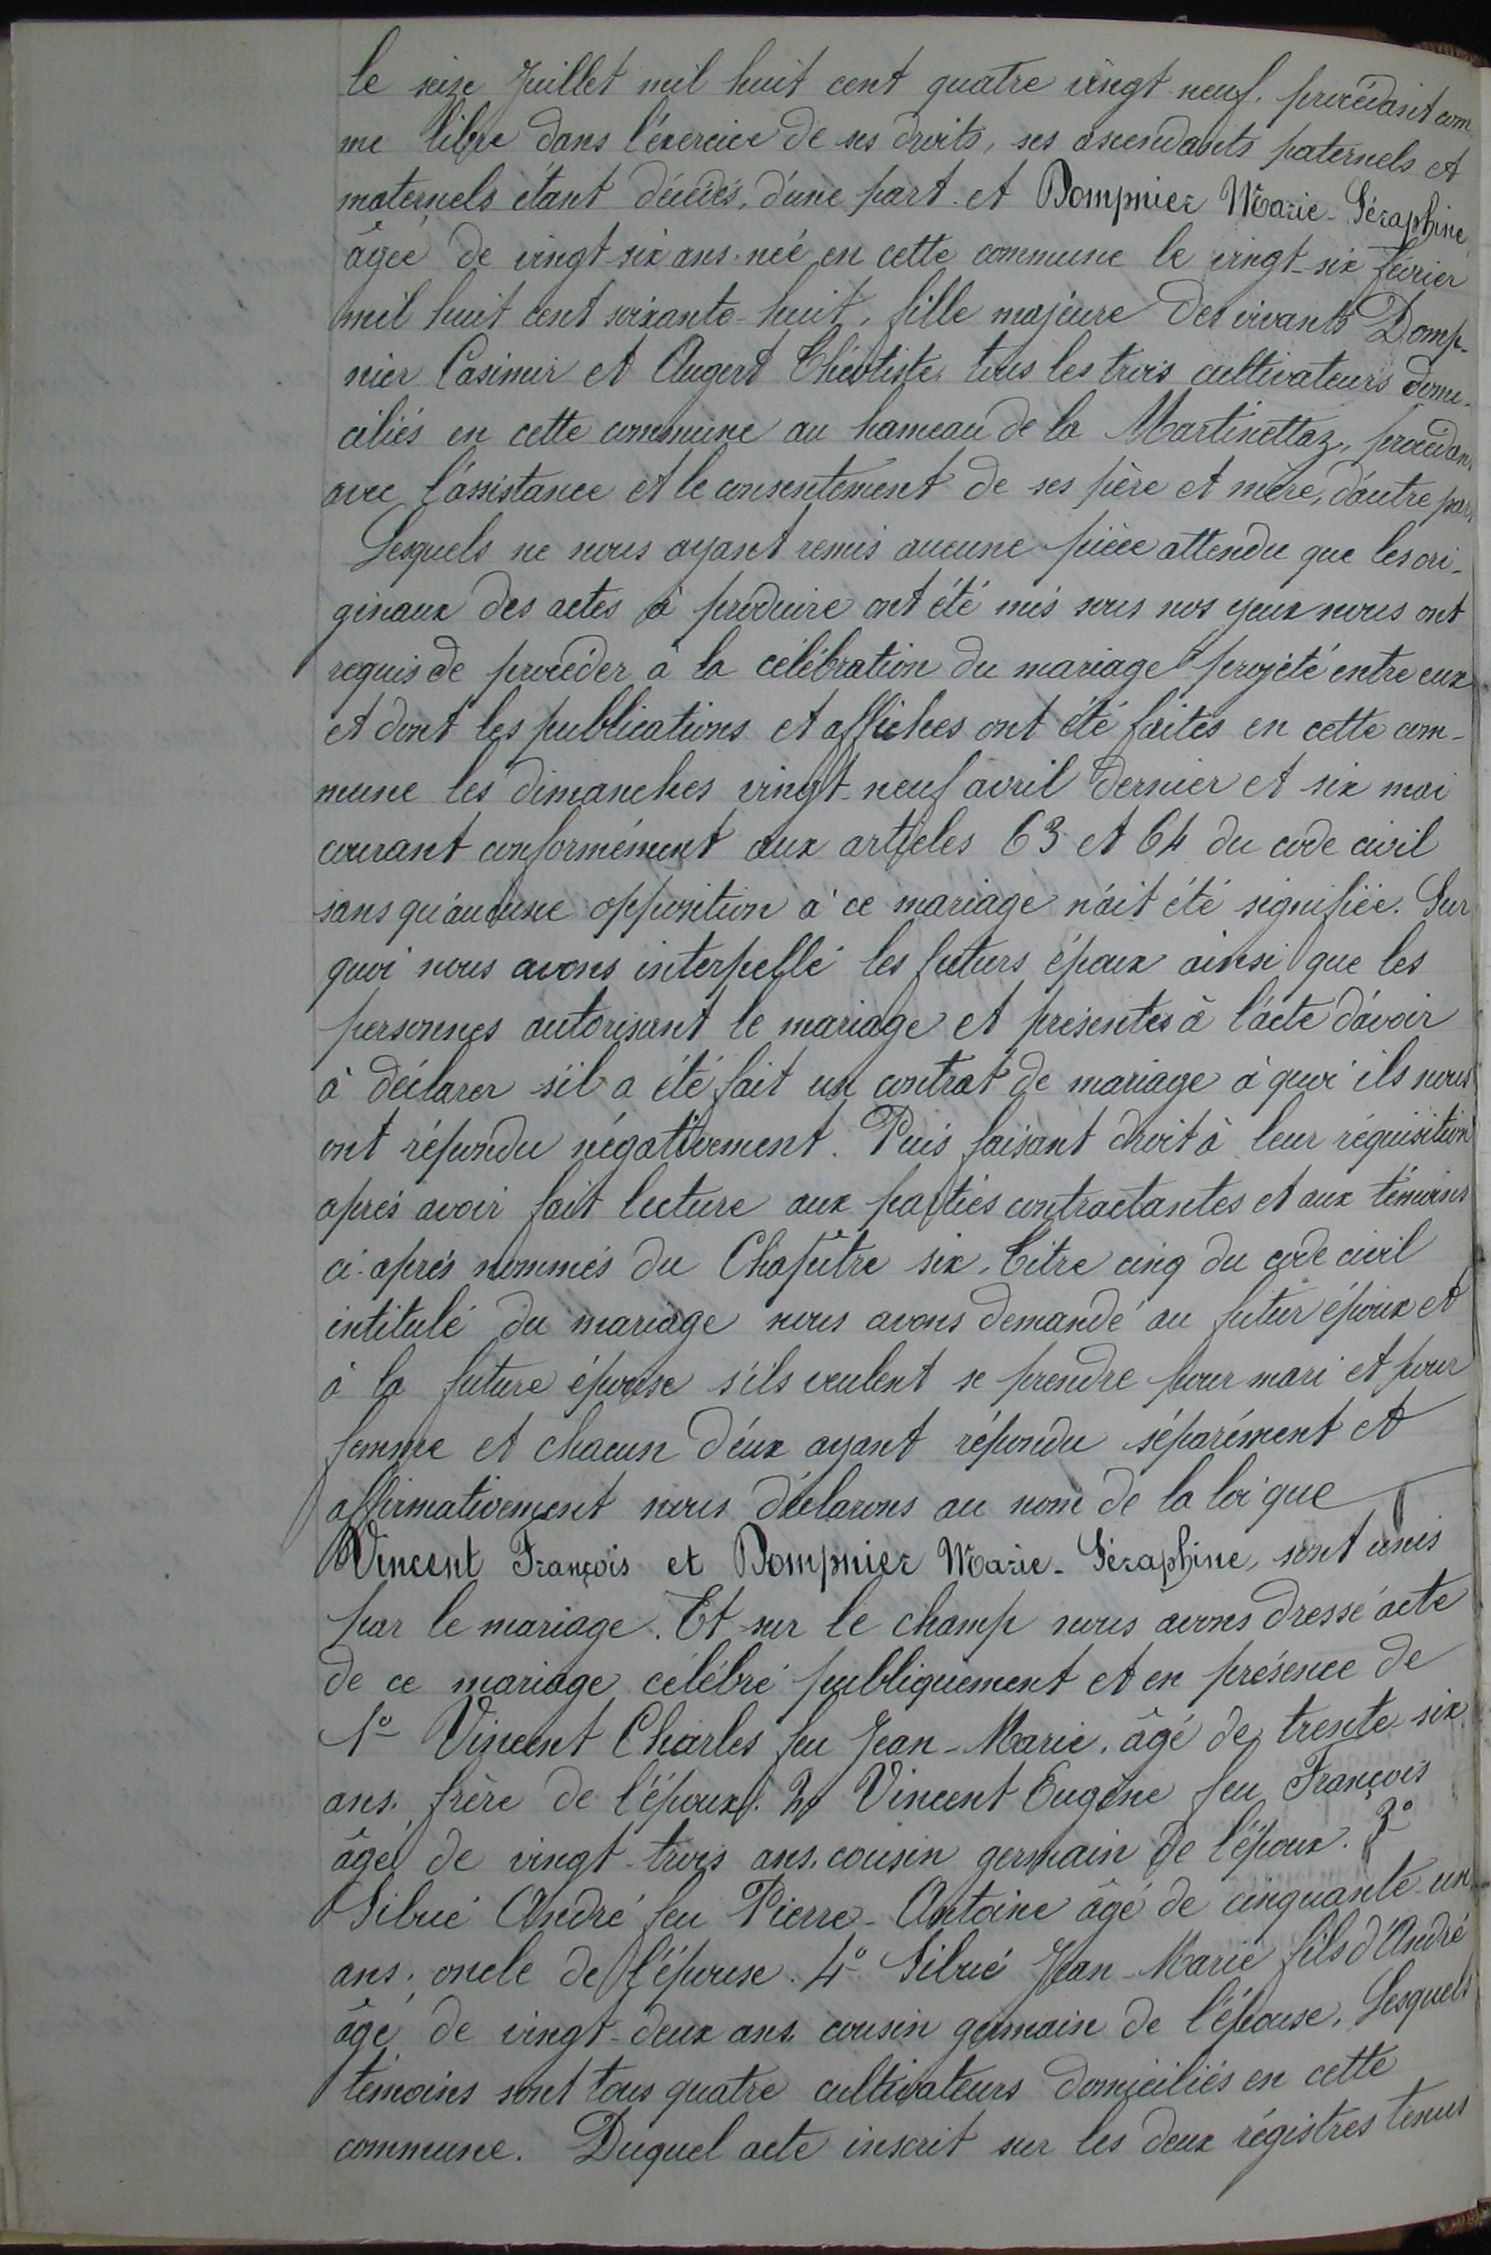 le seize Juillet mil huit cent quatre vingt-neuf. procédant com
me libre dans l'exercice de ses droits, ses ascendants paternels et
maternels étant décédés, d'une part. et Dompnier Marie-Séraphine
âgée de vingt-six ans. née en cette commune le vingt-six février
mil huit cent soixante-huit, fille majeure des vivants Domp-
nier Casimir et Augert Théotiste, tous les trois cultivateurs domi-
ciliés en cette commune au hameau de la Martinettaz, procédant
avec l'assistance et le consentement de ses père et mère, d'autre part
Lesquels ne nous ayant remis aucune pièce attendu que les ori-
ginaux des actes à produire ont été mis sous nos yeux nous ont
requis de procéder à la célébration du mariage projeté entre eux
et dont les publications et affiches ont été faites en cette com-
mune les dimanches vingt-neuf avril dernier et six mai
courant conformément aux articles 63 et 64 du code civil
sans qu'aucune opposition à ce mariage n'ait été signifiée. Sur
quoi nous avons interpellé les futurs époux ainsi que les
personnes autorisant le mariage et présentes à l'acte d'avoir
à déclarer s'il a été fait un contrat de mariage à quoi ils nous
ont répondu négativement. Puis faisant droit à leur réquisition
après avoir fait lecture aux parties contractantes et aux témoins
ci-après nommés du Chapître six, titre cinq du code civil
intitulé du mariage nous avons demandé au futur époux et
à la future épouse s'ils veulent se prendre pour mari et pour
femme et chacun d'eux ayant répondu séparément et
affirmativement nous déclarons au nom de la loi que
Vincent François et Dompnier Marie-Séraphine, sont unis
par le mariage. Et sur le champ nous avons dressé acte
de ce mariage célébré publiquement et en présence de
1º Vincent Charles feu Jean-Marie, âgé de trente-six
ans, frère de l'époux. 2º Vincent Eugène feu François
âgé de vingt-trois ans, cousin germain de l'époux. 3º
Sibué André feu Pierre-Antoine âgé de cinquante-un
ans, oncle de l'épouse. 4º Sibué Jean-Marie fils d'André
âgé de vingt-deux ans, cousin germain de l'épouse. Lesquels
témoins sont tous quatre cultivateurs domiciliés en cette
commune. Duquel acte inscrit sur les deux régistres tenus